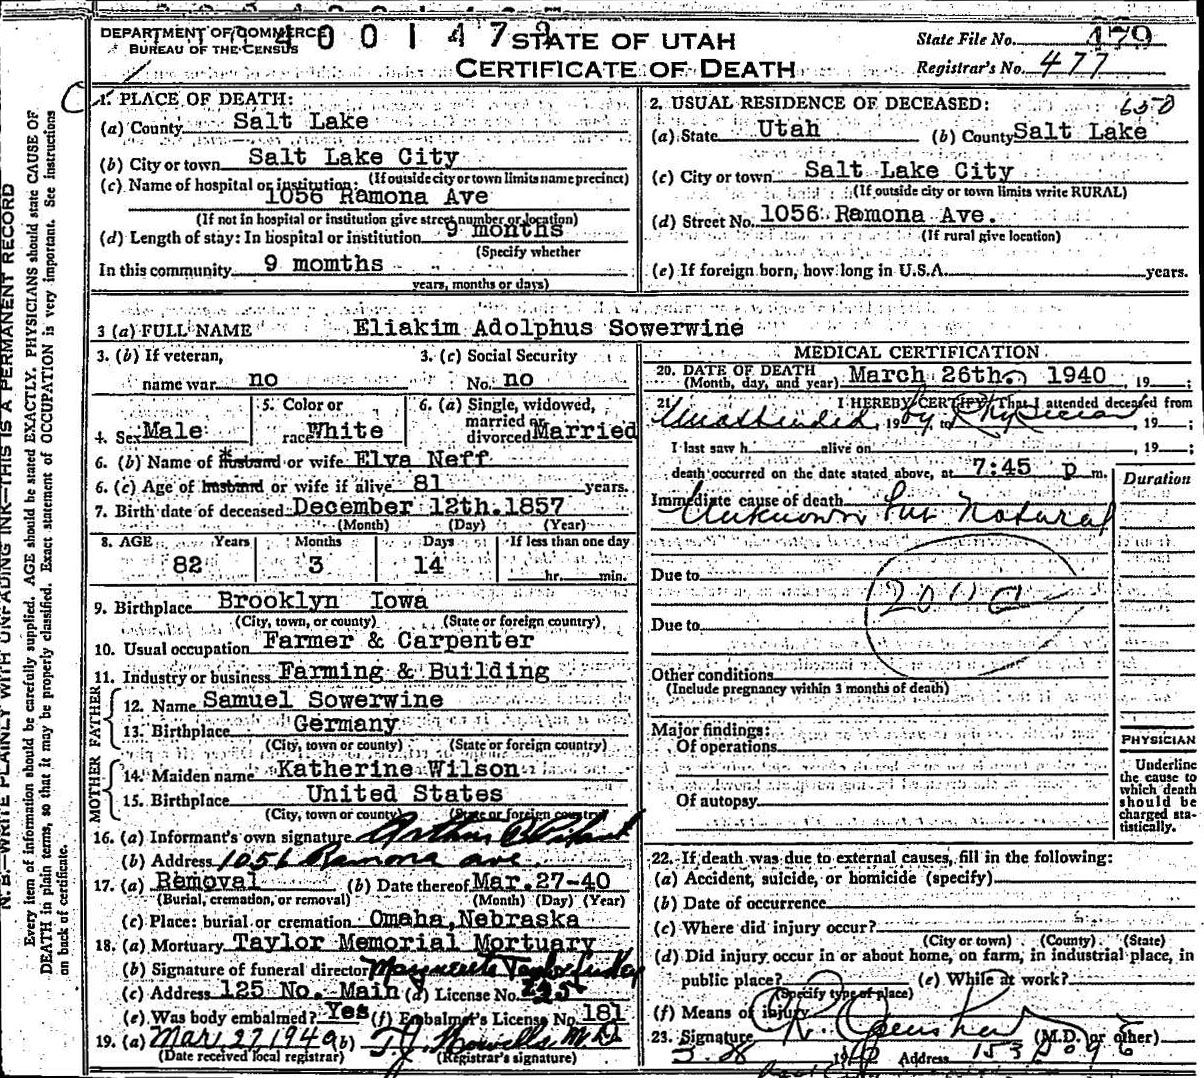 DEPARTMENT OF COMMERCE
BUREAU OF THE CENSUS
STATE OF UTAH
CERTIFICATE OF DEATH
State File No. 479
Registrar's No. 477
1. PLACE OF DEATH:
(a) County Salt Lake
(b) City or town Salt Lake City
(If outside city or town limits name precinct)
(c) Name of hospital or institution:
1056 Ramona Ave
(If not in hospital or institution give street number or location)
(d) Length of stay: In hospital or institution 9 months
(Specify whether
In this community 9 momths
years, months or days)
2. USUAL RESIDENCE OF DECEASED:
(a) State Utah (b) County Salt Lake
(c) City or town Salt Lake City
(If outside city or town limits write RURAL)
(d) Street No. 1056 Ramona Ave.
(If rural give location)
(e) If foreign born, how long in U.S.A. years.
3 (a) FULL NAME Eliakim Adolphus Sowerwine
3. (b) If veteran, 3. (c) Social Security
name war no No. no
5. Color or 6. (a) Single, widowed,
married or
4. Sex Male race White divorced Married
6. (b) Name of husband or wife Elva Neff
6. (c) Age of husband or wife if alive 81 years.
7. Birth date of deceased December 12th. 1857
(Month) (Day) (Year)
8. AGE Years Months Days If less than one day
82 3 14 hr. min.
9. Birthplace Brooklyn Iowa
(City, town, or county) (State or foreign country)
10. Usual occupation Farmer & Carpenter
11. Industry or business Farming & Building
FATHER
12. Name Samuel Sowerwine
13. Birthplace Germany
(City, town or county) (State or foreign country)
MOTHER
14. Maiden name Katherine Wilson
15. Birthplace United States
(City, town or county) (State or foreign country)
16. (a) Informant's own signature Arthur
(b) Address 1056 Ramona ave.
17. (a) Removal (b) Date thereof Mar. 27-40
(Burial, cremation, or removal) (Month) (Day) (Year)
(c) Place: burial or cremation Omaha, Nebraska
18. (a) Mortuary Taylor Memorial Mortuary
(b) Signature of funeral director Marguerete Taylor
(c) Address 125 No. Main (d) License No.
(e) Was body embalmed? Yes (f) Embalmer's License No. 181
19. (a) Mar. 27 1940 (b) T.J. Howells M.D.
(Date received local registrar) (Registrar's signature)
MEDICAL CERTIFICATION
20. DATE OF DEATH
(Month, day, and year) March 26th. 1940, 19 ;
21. I HEREBY CERTIFY That I attended deceased from
Unattended by Physician, 19 ;
I last saw h alive on , 19 ;
death occurred on the date stated above, at 7:45 p m.
Duration
Immediate cause of death
Unknown but Natural
Due to
200
Due to
Other conditions
(Include pregnancy within 3 months of death)
Major findings:
Of operations
Of autopsy
PHYSICIAN
Underline
the cause to
which death
should be
charged sta-
tistically.
22. If death was due to external causes, fill in the following:
(a) Accident, suicide, or homicide (specify)
(b) Date of occurrence
(c) Where did injury occur?
(City or town) (County) (State)
(d) Did injury occur in or about home, on farm, in industrial place, in
public place? (e) While at work?
(Specify type of place)
(f) Means of injury
23. Signature (M.D. or other)
Address
N. B.—WRITE PLAINLY WITH UNFADING INK—THIS IS A PERMANENT RECORD
Every item of information should be carefully supplied. AGE should be stated EXACTLY. PHYSICIANS should state CAUSE OF
DEATH in plain terms, so that it may be properly classified. Exact statement of OCCUPATION is very important. See instructions
on back of certificate.